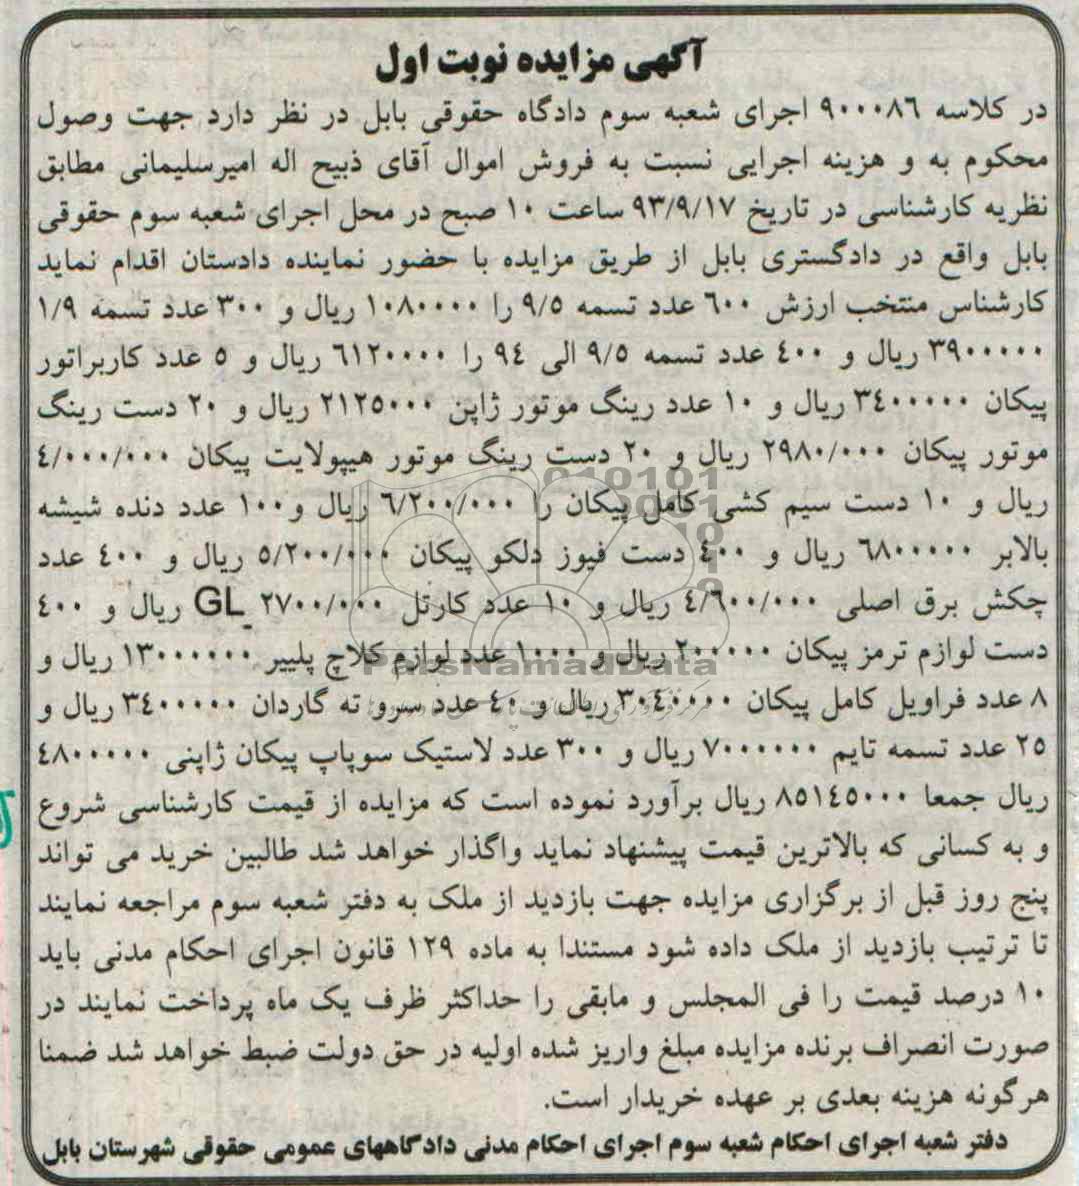 آگهی مزایده نوبت اول
در کلاسه ۹۰۰۰۸۶ اجرای شعبه سوم دادگاه حقوقی بابل در نظر دارد جهت وصول
محکوم به و هزینه اجرایی نسبت به فروش اموال آقای ذبیح اله امیرسلیمانی مطابق
نظریه کارشناسی در تاریخ ۹۳/۹/۱۷ ساعت ۱۰ صبح در محل اجرای شعبه سوم حقوقی
بابل واقع در دادگستری بابل از طریق مزایده با حضور نماینده دادستان اقدام نماید
کارشناس منتخب ارزش ۶۰۰ عدد تسمه ۹/۵ را ۱۰۸۰۰۰۰ ریال و ۳۰۰ عدد تسمه ۱/۹
۳۹۰۰۰۰۰ ریال و ۴۰۰ عدد تسمه ۹/۵ الی ۹۴ را ۶۱۲۰۰۰۰ ریال و ۵ عدد کاربراتور
پیکان ۳۴۰۰۰۰۰ ریال و ۱۰ عدد رینگ موتور ژاپن ۲۱۲۵۰۰۰ ریال و ۲۰ دست رینگ
موتور پیکان ۲۹۸۰/۰۰۰ ریال و ۲۰ دست رینگ موتور هیپولایت پیکان ۴/۰۰۰/۰۰۰
ریال و ۱۰ دست سیم کشی کامل پیکان را ۶/۲۰۰/۰۰۰ ریال و ۱۰۰ عدد دنده شیشه
بالابر ۶۸۰۰۰۰۰ ریال و ۴۰۰ دست فیوز دلکو پیکان ۵/۲۰۰/۰۰۰ ریال و ۴۰۰ عدد
چکش برق اصلی ۴/۶۰۰/۰۰۰ ریال و ۱۰ عدد کارتل GL ۲۷۰۰/۰۰۰ ریال و ۴۰۰
دست لوازم ترمز پیکان ۲۰۰۰۰۰ ریال و ۱۰۰۰ عدد لوازم کلاچ پلییر ۱۳۰۰۰۰۰۰ ریال و
۸ عدد فراویل کامل پیکان ۳۰۴۰۰۰۰ ریال و ۴۰ عدد سرو ته گاردان ۳۴۰۰۰۰۰ ریال و
۲۵ عدد تسمه تایم ۷۰۰۰۰۰۰ ریال و ۳۰۰ عدد لاستیک سوپاپ پیکان ژاپنی ۴۸۰۰۰۰۰
ریال جمعا ۸۵۱۴۵۰۰۰ ریال برآورد نموده است که مزایده از قیمت کارشناسی شروع
و به کسانی که بالاترین قیمت پیشنهاد نماید واگذار خواهد شد طالبین خرید می تواند
پنج روز قبل از برگزاری مزایده جهت بازدید از ملک به دفتر شعبه سوم مراجعه نمایند
تا ترتیب بازدید از ملک داده شود مستندا به ماده ۱۲۹ قانون اجرای احکام مدنی باید
۱۰ درصد قیمت را فی المجلس و مابقی را حداکثر ظرف یک ماه پرداخت نمایند در
صورت انصراف برنده مزایده مبلغ واریز شده اولیه در حق دولت ضبط خواهد شد ضمنا
هرگونه هزینه بعدی بر عهده خریدار است.
دفتر شعبه اجرای احکام شعبه سوم اجرای احکام مدنی دادگاههای عمومی حقوقی شهرستان بابل
ParsNamadData